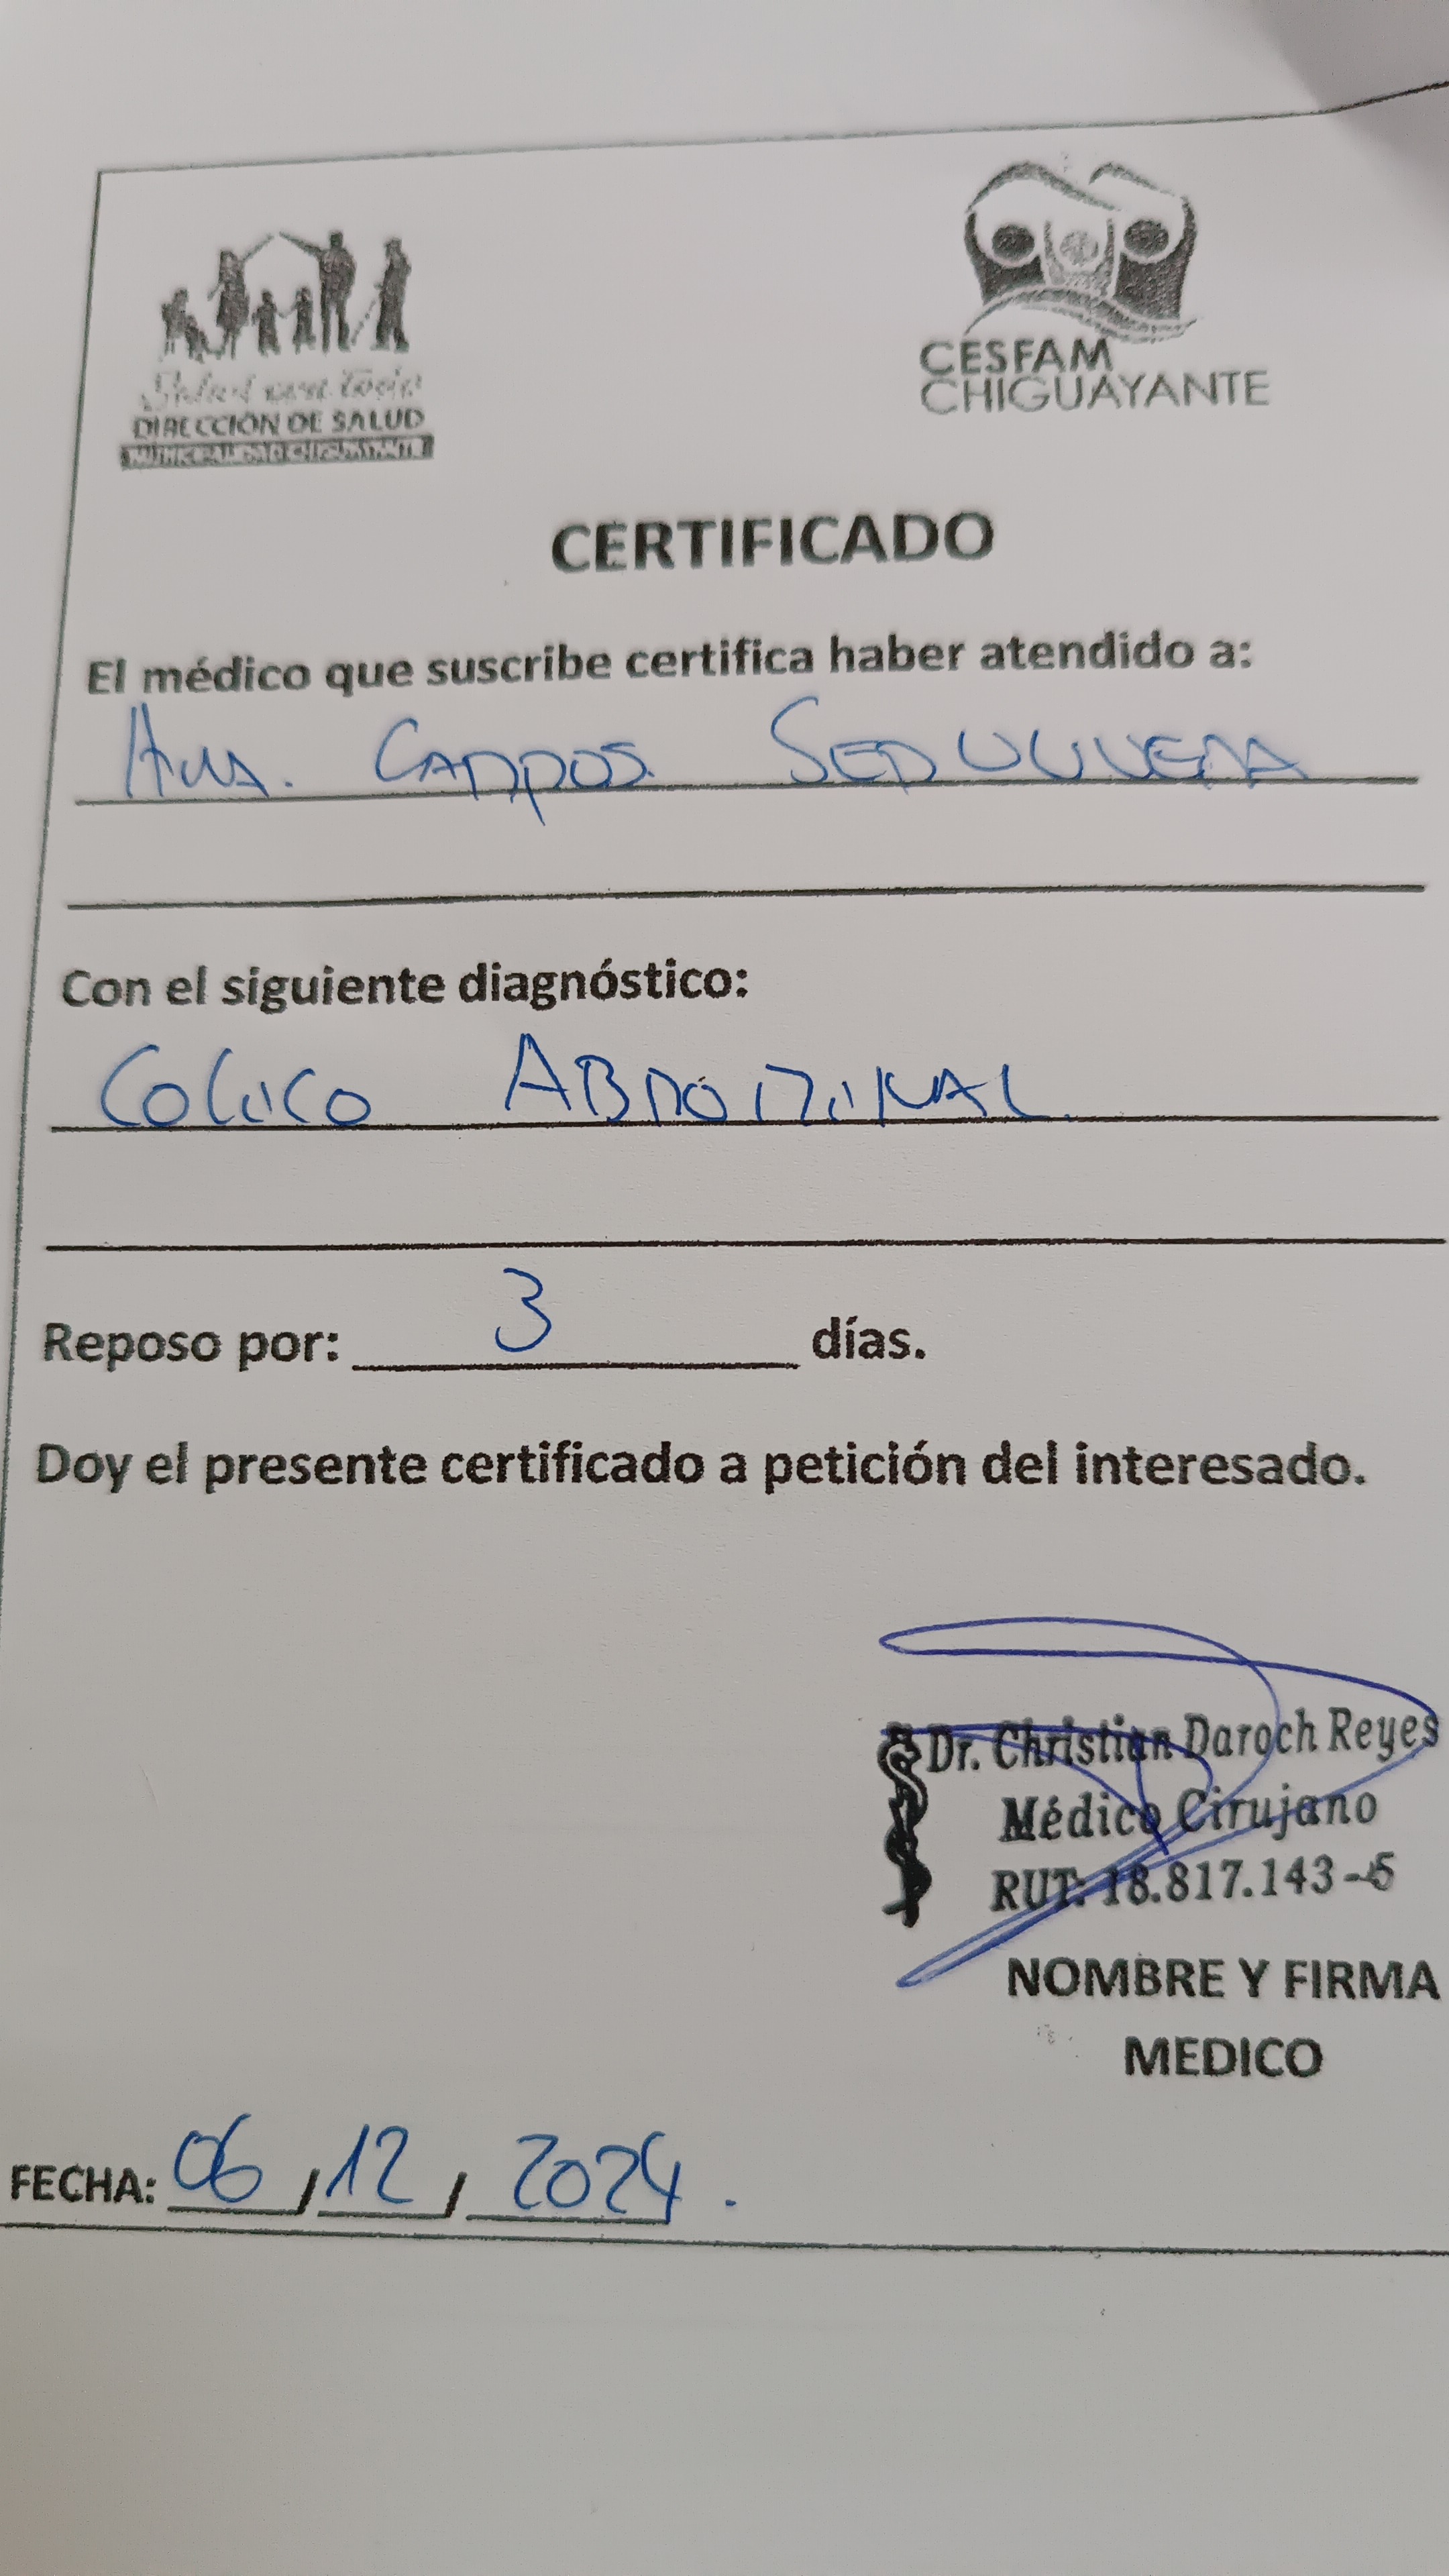 Salud para todos
DIRECCIÓN DE SALUD
MUNICIPALIDAD CHIGUAYANTE
CESFAM
CHIGUAYANTE
CERTIFICADO
El médico que suscribe certifica haber atendido a:
CAMPOS
Con el siguiente diagnóstico:
COLICO ABDOMINAL
Reposo por: 3 días.
Doy el presente certificado a petición del interesado.
Dr. Christian Daroch Reyes
Médico Cirujano
RUT: 18.817.143-5
NOMBRE Y FIRMA
MEDICO
FECHA: 06/12/2024.